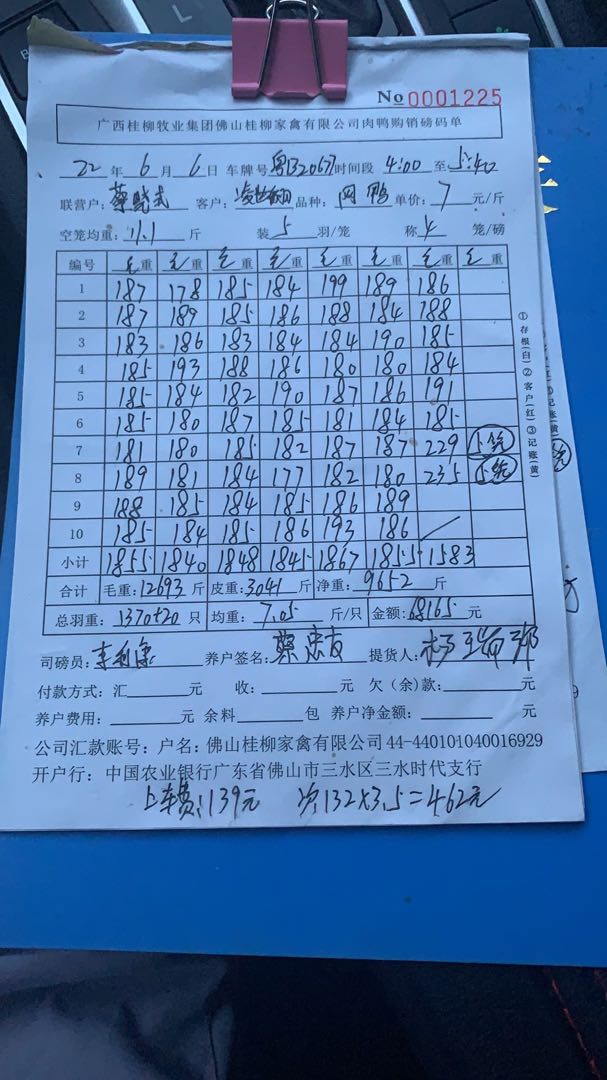 No 0001225
广西桂柳牧业集团佛山桂柳家禽有限公司肉鸭购销磅码单
22 年 6 月 6 日 车牌号 时间段 4:00 至 5:40
联营户: 客户: 品种: 鸭 单价: 7 元/斤
空笼均重: 11.1 斤 装 5 羽/笼 称 4 笼/磅
编号 毛重 毛重 毛重 毛重 毛重 毛重 毛重 毛重
1 187 178 185 184 199 189 186
2 187 189 185 186 188 184 188
3 183 186 183 184 184 190 185
4 185 193 188 186 180 180 184
5 185 184 182 190 187 186 191
6 185 180 187 185 181 184 185
7 181 180 185 182 187 187 229 5笼
8 189 181 184 177 182 180 235 5笼
9 188 185 184 185 186 189
10 185 184 185 186 193 186
小计 1855 1840 1848 1845 1867 1855 1583
合计 毛重: 12693 斤 皮重: 3041 斤 净重: 9652 斤
总羽重: 1370+20 只 均重: 7.05 斤/只 金额: 68165 元
司磅员: 养户签名: 提货人:
付款方式: 汇 元 收: 元 欠(余)款: 元
养户费用: 元 余料 包 养户净金额: 元
公司汇款账号: 户名: 佛山桂柳家禽有限公司 44-440101040016929
开户行: 中国农业银行广东省佛山市三水区三水时代支行
上车费:1139元 132×3.5=462元
①存根(白)②客户(红)③记账(黄)